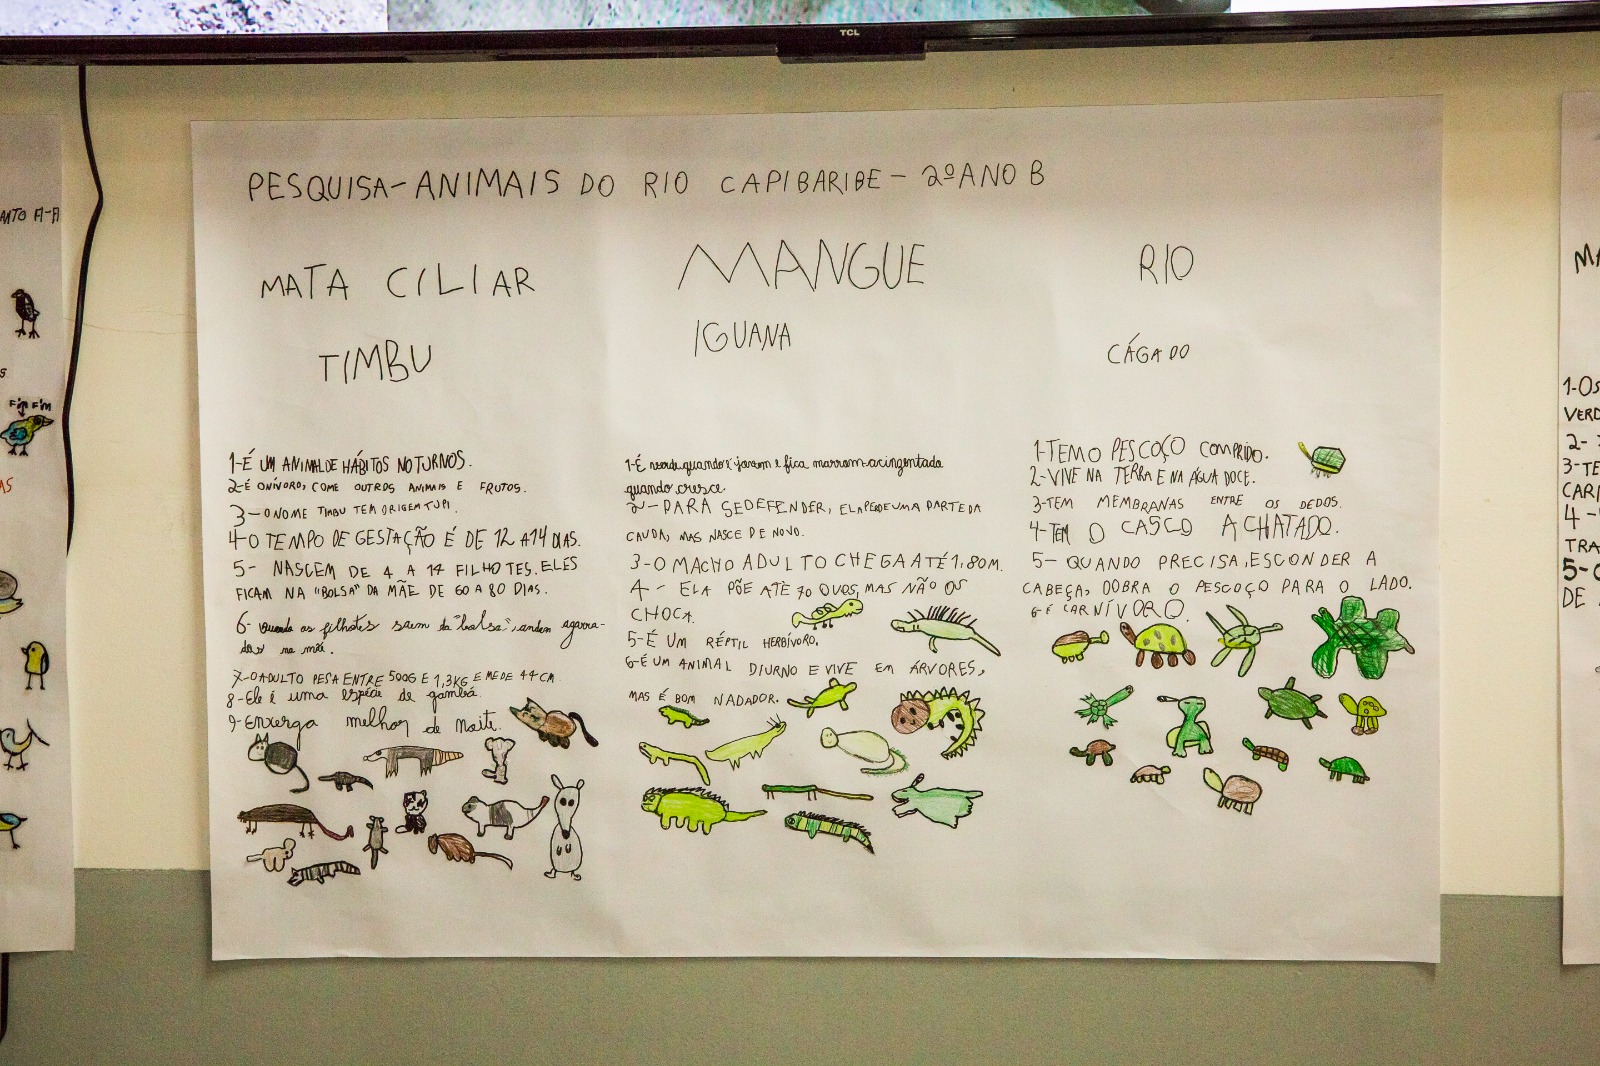 TCL
PESQUISA-ANIMAIS DO RIO CAPIBARIBE - 2º ANO B
MATA CILIAR
TIMBU
1-É UM ANIMAL DE HÁBITOS NOTURNOS.
2-É ONÍVORO, COME OUTROS ANIMAIS E FRUTOS.
3-O NOME TIMBU TEM ORIGEM TUPI.
4-O TEMPO DE GESTAÇÃO É DE 12 A 14 DIAS.
5- NASCEM DE 4 A 14 FILHOTES. ELES
FICAM NA "BOLSA" DA MÃE DE 60 A 80 DIAS.
6- quando os filhotes saem da "bolsa", andam agarra-
dos na mãe.
7-O ADULTO PESA ENTRE 500G E 1,3KG E MEDE 44 CM.
8-Ele é uma espécie de gambá.
9-Enxerga melhor de noite.
MANGUE
IGUANA
1-É verde quando é jovem e fica marrom-acinzentada
quando cresce.
2-PARA SE DEFENDER, ELA PERDE UMA PARTE DA
CAUDA, MAS NASCE DE NOVO.
3-O MACHO ADULTO CHEGA ATÉ 1,80M.
4- ELA PÕE ATÉ 70 OVOS, MAS NÃO OS
CHOCA.
5-É UM RÉPTIL HERBÍVORO.
6-É UM ANIMAL DIURNO E VIVE EM ÁRVORES,
MAS É BOM NADADOR.
RIO
CÁGADO
1-TEM O PESCOÇO COMPRIDO.
2-VIVE NA TERRA E NA ÁGUA DOCE.
3-TEM MEMBRANAS ENTRE OS DEDOS.
4-TEM O CASCO ACHATADO.
5- QUANDO PRECISA, ESCONDER A
CABEÇA, DOBRA O PESCOÇO PARA O LADO.
6-É CARNÍVORO.
1-OS
VERD
3-TE
CARN
4-
TRA
5-
DE